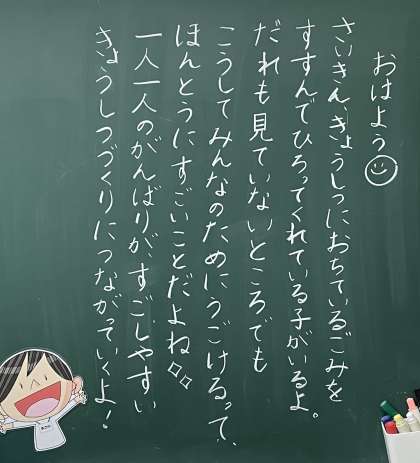 おはよう
さいきん、きょうしつにおちているごみを
すすんでひろってくれている子がいるよ。
だれも見ていないところでも
こうしてみんなのためにうごけるって、
ほんとうにすごいことだよね
一人一人のがんばりが、すごしやすい
きょうしつづくりにつながっていくよ！